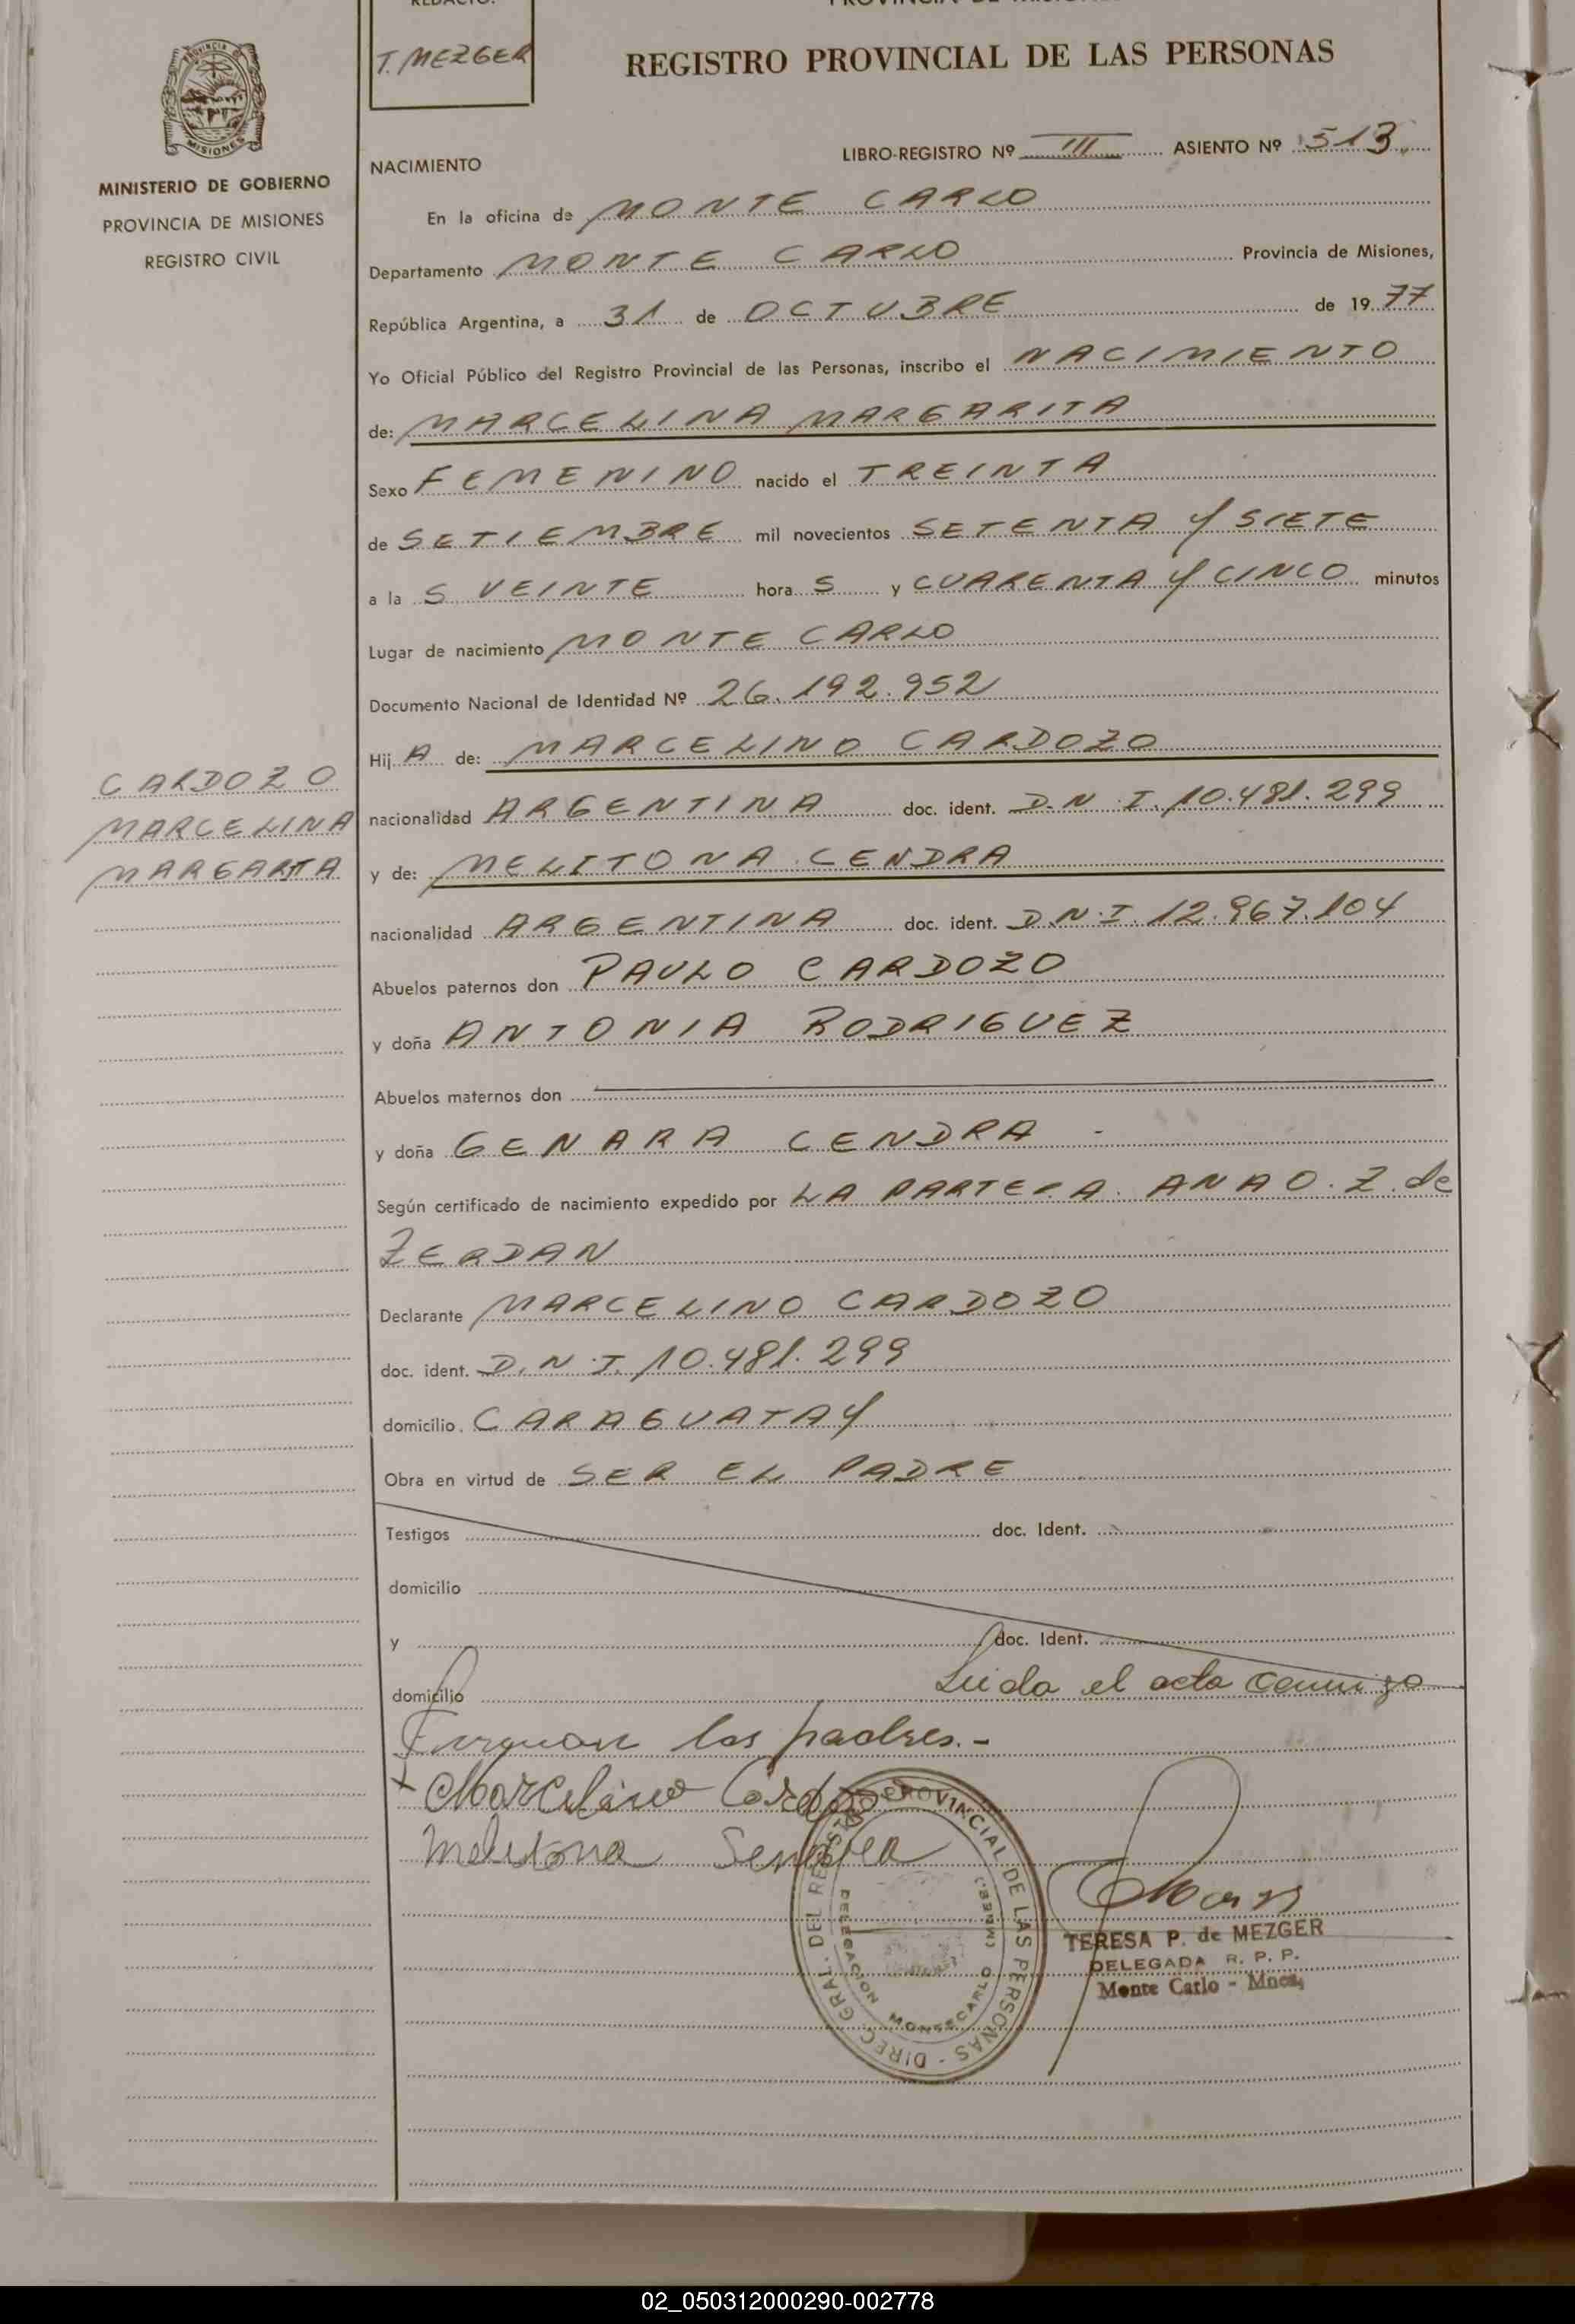 REDACTO:
T. MEZGER
PROVINCIA DE MISIONES
REGISTRO PROVINCIAL DE LAS PERSONAS
MISIONES
MINISTERIO DE GOBIERNO
PROVINCIA DE MISIONES
REGISTRO CIVIL
NACIMIENTO
LIBRO-REGISTRO Nº III ASIENTO Nº 513
En la oficina de MONTE CARLO
Departamento MONTE CARLO Provincia de Misiones,
República Argentina, a 31 de OCTUBRE de 1977
Yo Oficial Público del Registro Provincial de las Personas, inscribo el NACIMIENTO
de: MARCELINA MARGARITA
Sexo FEMENINO nacido el TREINTA
de SETIEMBRE mil novecientos SETENTA Y SIETE
a la S VEINTE hora S y CUARENTA Y CINCO minutos
Lugar de nacimiento MONTE CARLO
Documento Nacional de Identidad Nº 26.192.952
Hij A de: MARCELINO CARDOZO
CARDOZO
MARCELINA
MARGARITA
nacionalidad ARGENTINA doc. ident. D.N.I. 10.481.299
y de: MELITONA CENDRA
nacionalidad ARGENTINA doc. ident. D.N.I. 12.967.104
Abuelos paternos don PAULO CARDOZO
y doña ANTONIA RODRIGUEZ
Abuelos maternos don
y doña GENARA CENDRA -
Según certificado de nacimiento expedido por LA PARTERA ANA O. Z. de
ZERDAN
Declarante MARCELINO CARDOZO
doc. ident. D.N.I. 10.481.299
domicilio. CARAGUATAY
Obra en virtud de SER EL PADRE
Testigos doc. Ident.
domicilio
y doc. Ident.
domicilio Leida el acta conmigo
Firman los padres.-
x Marcelino Cardozo
Melitona Sendra
DIREC. GRAL. DEL REGISTRO PROVINCIAL DE LAS PERSONAS -
DELEGACION MONTECARLO (MNES.)
TERESA P. de MEZGER
DELEGADA R. P. P.
Monte Carlo - Mnes,
02_050312000290-002778